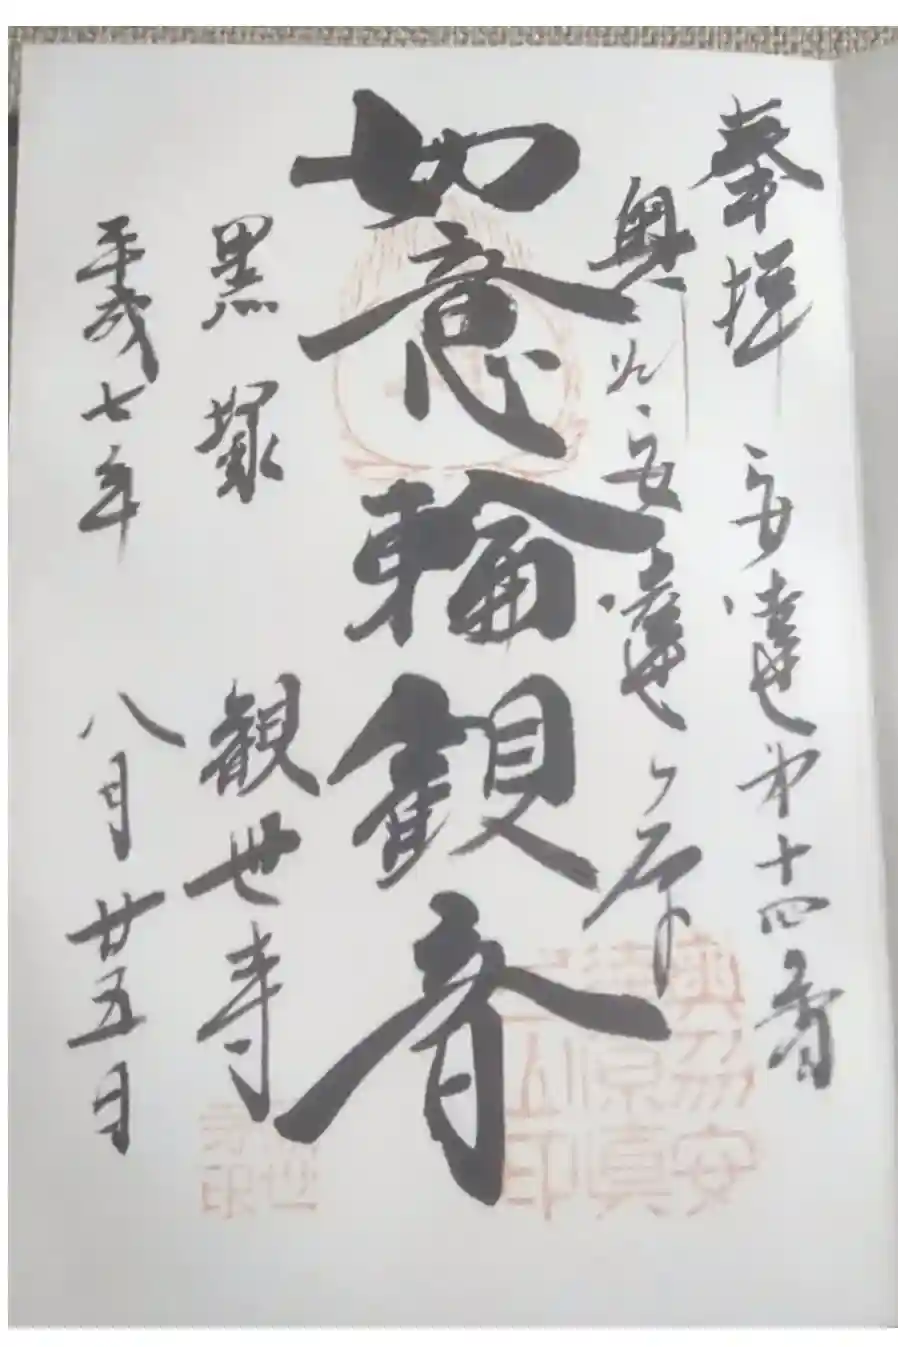 奉拝 安達第十四番
奥州安達ヶ原
如意輪観音
黒塚 観世寺
平成七年 八月廿五日
奥刕安
達原真
弓山印
観世
寺印